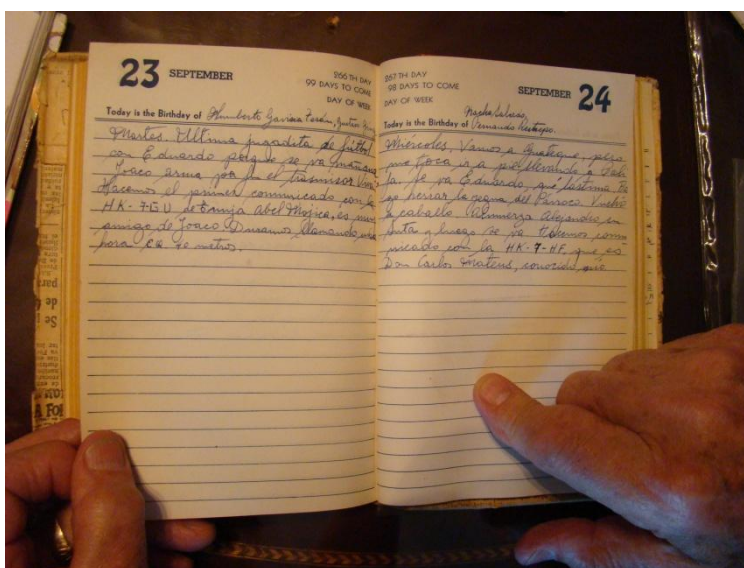 23 SEPTEMBER
266 TH DAY
99 DAYS TO COME
DAY OF WEEK
Today is the Birthday of Humberto Gaviria
Martes. Ultima jugadita de fútbol
con Eduardo porque se va mañana
Joaco arma por fin el trasmisor
Hacemos el primer comunicado con la
HK-7GU de Abel Mojica, es muy
amigo de Joaco. Duramos llamando
hora CQ 40 metros.
267 TH DAY
98 DAYS TO COME
DAY OF WEEK
SEPTEMBER 24
Today is the Birthday of Fernando Restrepo.
Miércoles. Vamos a Guateque, pero
me toca ir a pie llevando a
la. Se va Eduardo, que lástima
herrar la yegua del Párroco. Vuelvo
a caballo. Almuerza Alejandro
y luego se va. Hacemos comu-
nicado con la HK-7-HF, que es
Don Carlos Mateus, conocido